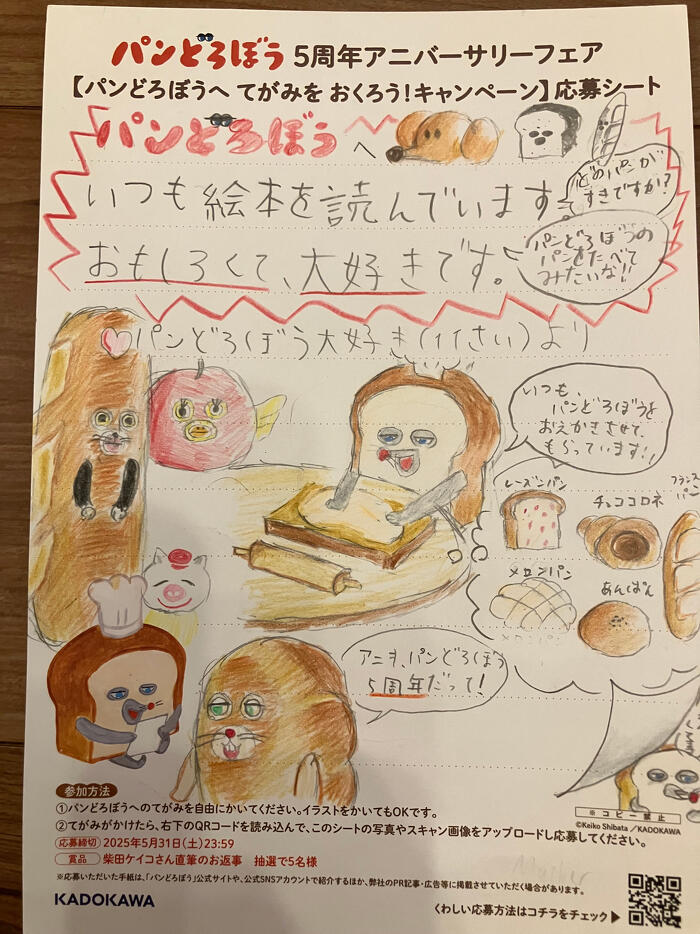 パンどろぼう 5周年アニバーサリーフェア
【パンどろぼうへ てがみを おくろう!キャンペーン】応募シート
パンどろぼう へ
どのパンが
すきですか?
いつも絵本を読んでいます。
パンどろぼうの
パンをたべて
みたいな!!
おもしろくて、大好きです。
パンどろぼう大好き(11さい)より
いつも、
パンどろぼうを
おえかきさせて
もらっています!!
レーズンパン
チョココロネ
フランス
パン
メロンパン
あんぱん
メロンパン
アニキ、パンどろぼう
5周年だって!
参加方法
①パンどろぼうへのてがみを自由にかいてください。イラストをかいてもOKです。
②てがみがかけたら、右下のQRコードを読み込んで、このシートの写真やスキャン画像をアップロードし応募してください。
応募締切 2025年5月31日(土)23:59
賞品 柴田ケイコさん直筆のお返事 抽選で5名様
※応募いただいた手紙は、「パンどろぼう」公式サイトや、公式SNSアカウントで紹介するほか、弊社のPR記事・広告等に掲載させていただく場合があります。
※コピー禁止
©Keiko Shibata/KADOKAWA
KADOKAWA
くわしい応募方法はコチラをチェック▶